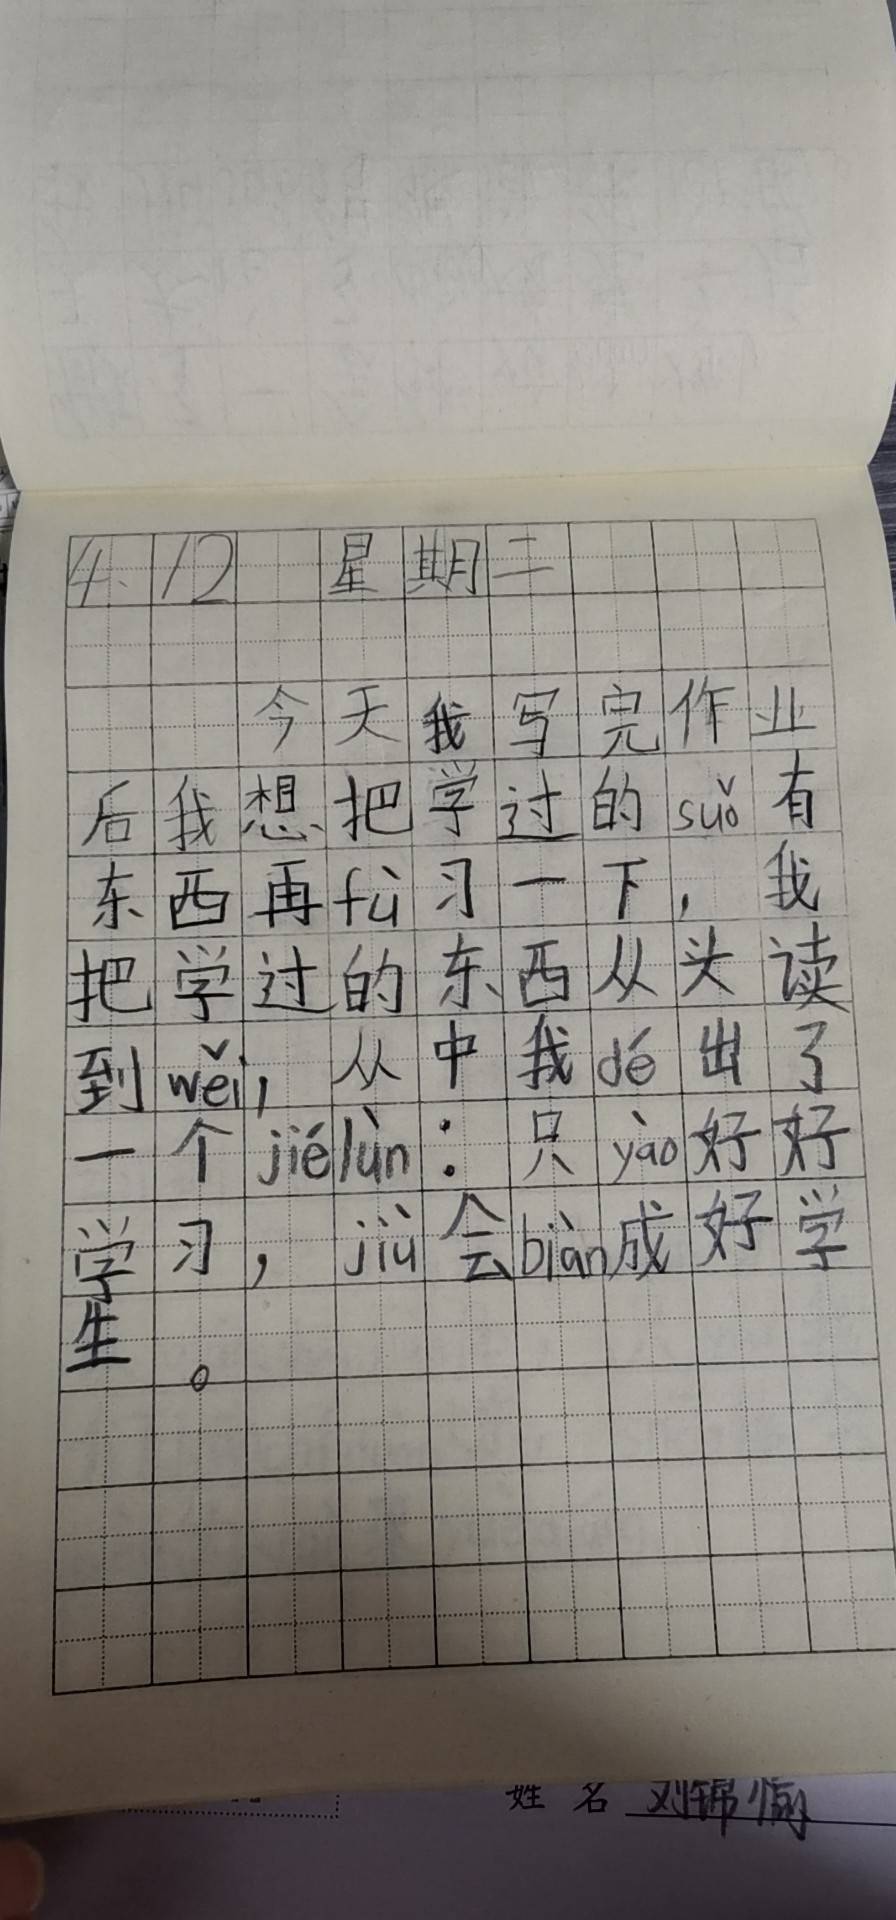 4.12 星期二
今天我写完作业
后我想把学过的suǒ有
东西再fù习一下，我
把学过的东西从头读
到wěi，从中我dé出了
一个jiélùn：只yào好好
学习，jiù会biàn成好学
生。
姓名 刘锦愉